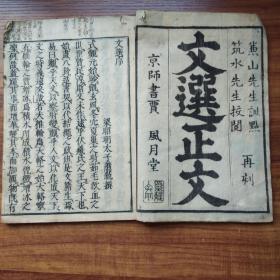 嵩山先生訓點
筑水先生挍閲
再刻
文選正文
京師書賈 風月堂
文選序
梁昭明太子蕭統撰
式觀元始眇覿玄風冬穴夏巢之時茹毛飲血之
世質民淳斯文未作逮乎伏羲氏之王天下也
始畫八卦造書契以代結繩之政由是文籍生焉
易曰觀乎天文以察時變觀乎人文以化成天下
文之時義遠矣哉若夫椎輪爲大輅之始大輅寧
有椎輪之質增冰爲積水所成積水曾微增冰之
凜何哉蓋踵其事而增華變其本而加厲物既有